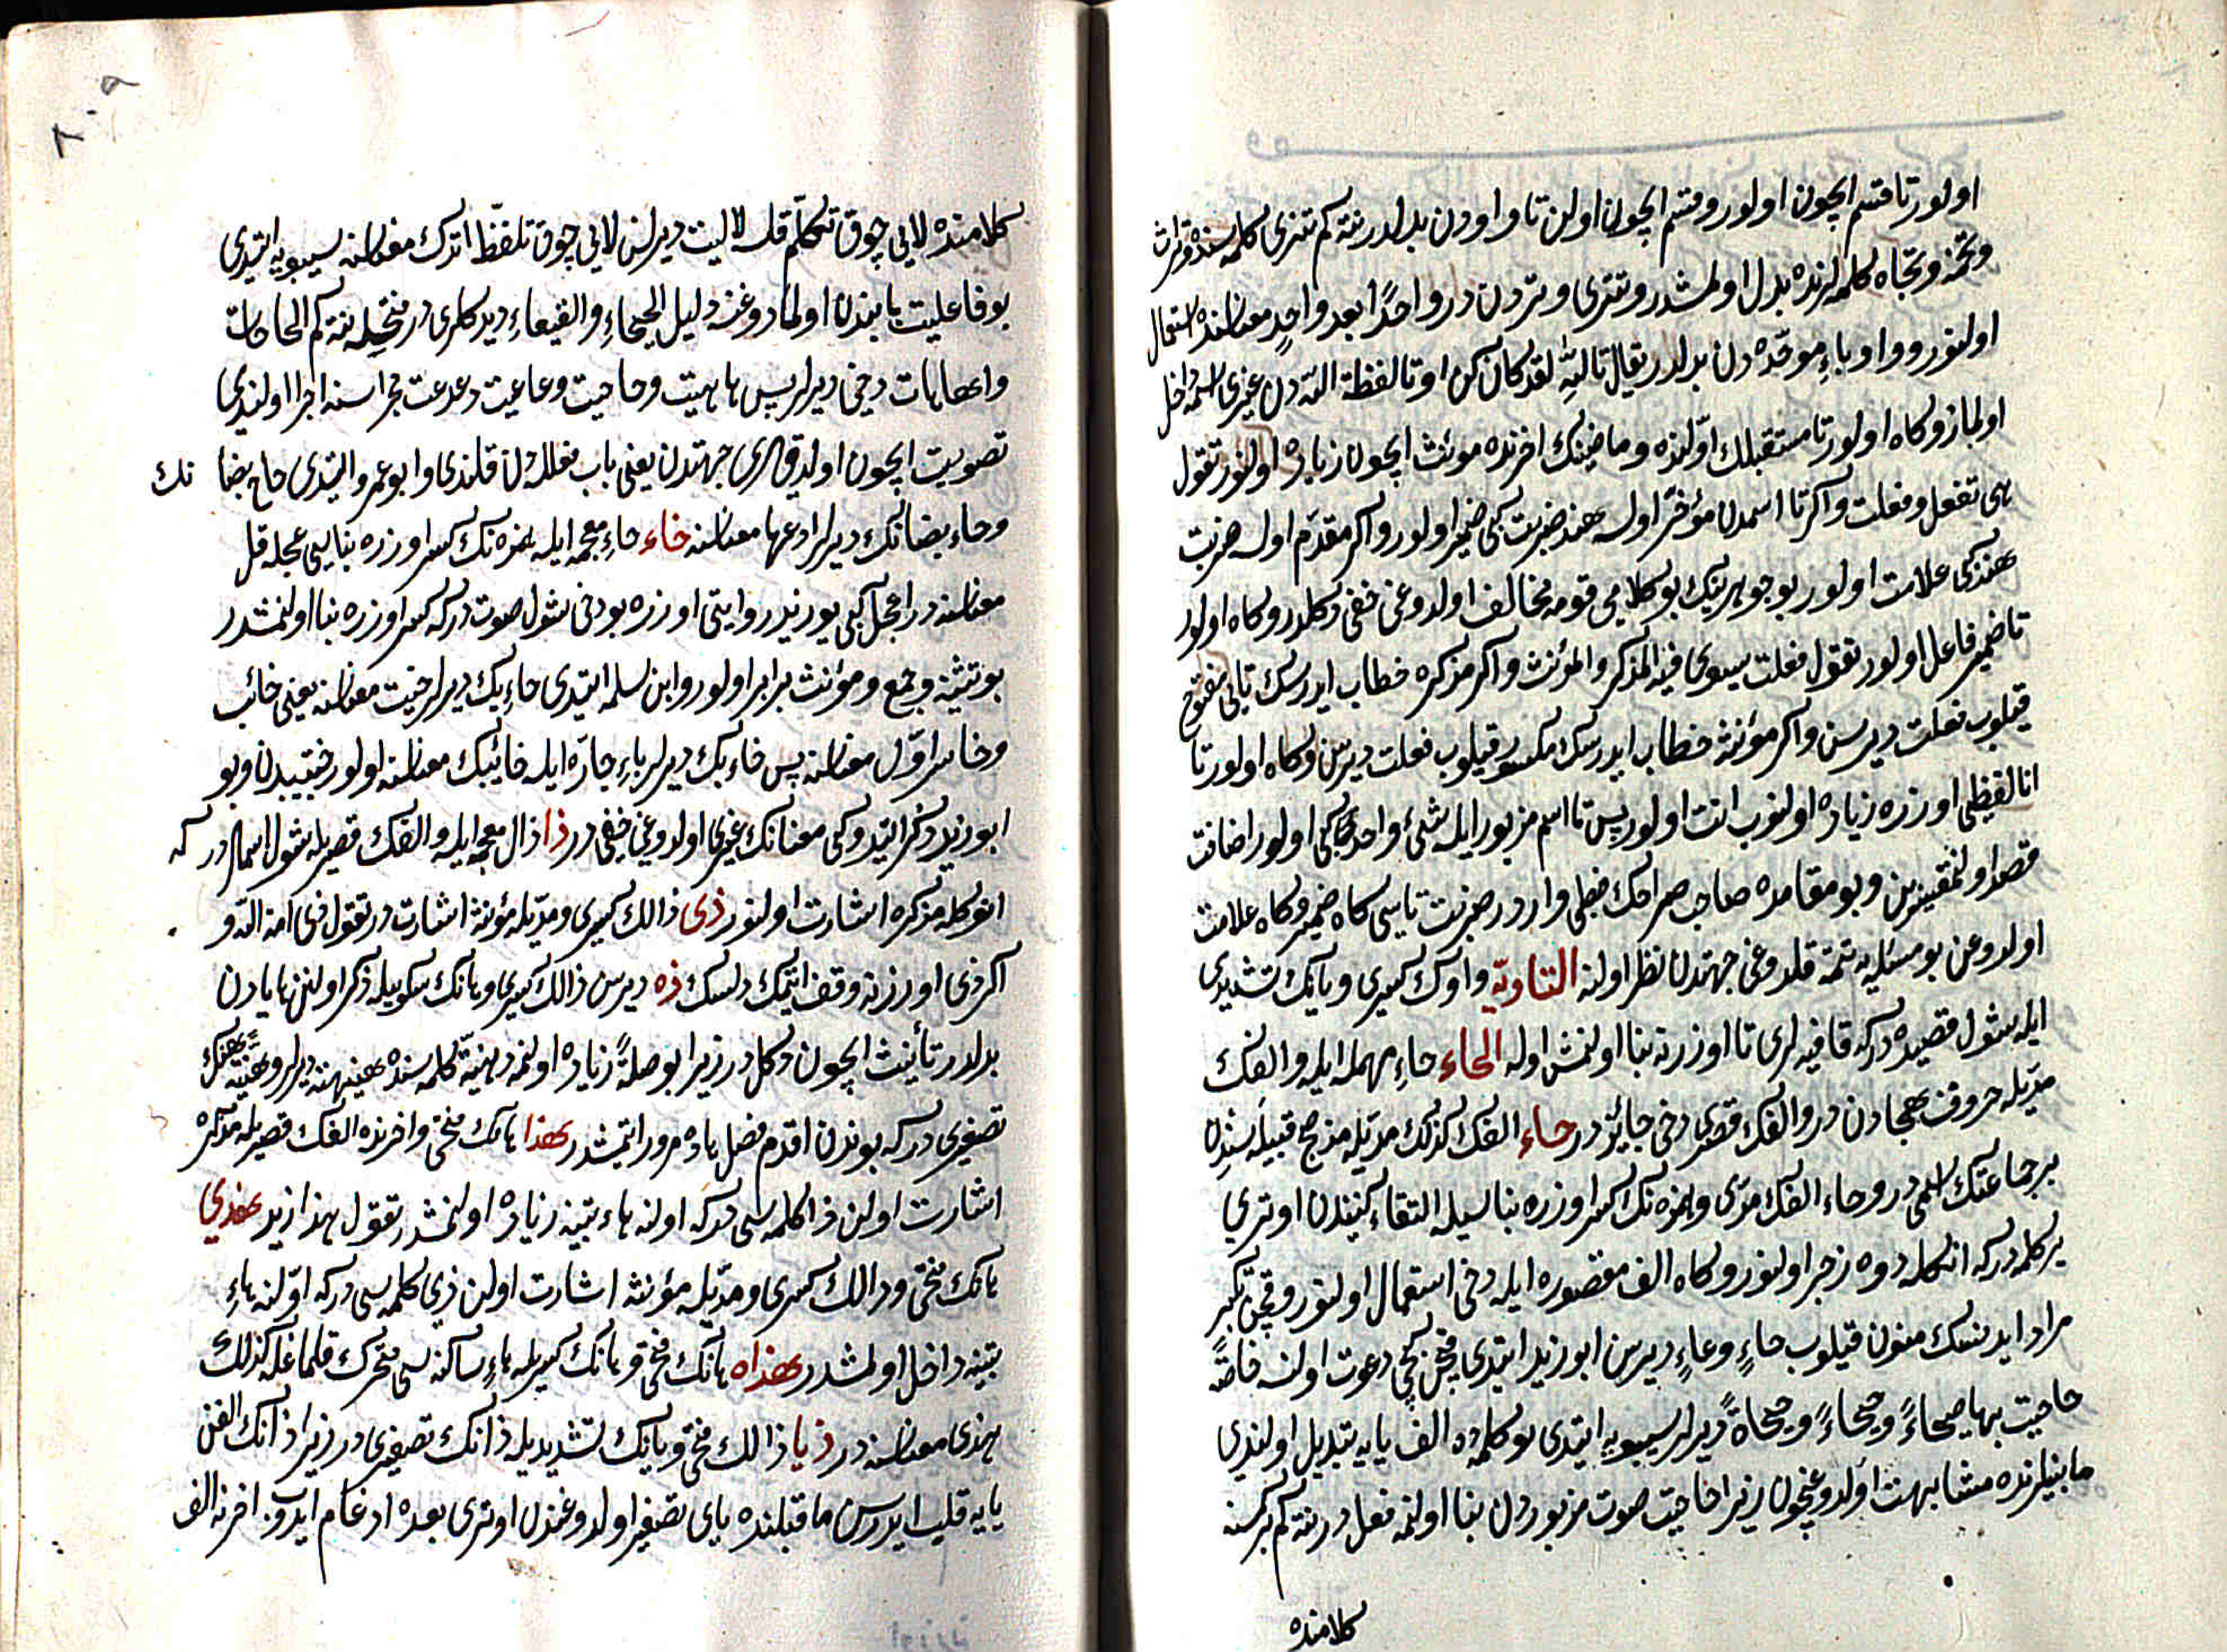 اولور تا قسم ايچون اولور و قسم ايچون اولن تا واودن بدلدر نته كم تترى كلمه سنده و تراث
و تخمه و تجاه كلمه لرنده بدل اولمشدر و تترى وتردن در واحدًا بعد واحدٍ معناسنده استعمال
اولنور و واو باءِ موحّده دن بدلدر يقال تاللّٰه لقد كان كذا و تا لفظۀ اللّه دن غيرى اسمه داخل
اولماز و كاه اولور تا مستقبلك اوّلنده و ماضينك اخرنده مونث ايچون زياده اولنور تقول
هى تفعل و فعلت و اكر تا اسمدن مؤخّر اولسه هند ضربت كبى ضمير اولور و اكر مقدّم اولسه ضربت
هند كبى علامت اولور بو جوهرينك بو كلامى قومه مخالف اولدوغى خفى دكلدر و كاه اولور
تا ضمير فاعل اولور تقول فعلت يستوى فيه المذكر و المؤنث و اكر مذكره خطاب ايدرسك تايى مفتوح
قيلوب فعلت ديرسن و اكر مؤنثه خطاب ايدرسك مكسور قيلوب فعلت ديرسن و كاه اولور تا
انا لفظى اوزره زياده اولنوب انت اولور پس تا اسم مزبور ايله شئ واحد كبى اولور اضافت
قصد اولنمقسزين و بو مقامده صاحب صراحك خطى واردر ضربت تاسى كاه ضمير و كاه علامت
اولدوغن بو مسئله يه تتمه قلدوغى جهتدن نظر اولنه التاويّه واوك كسرى و يانك تشديدى
ايله شول قصيده دركه قافيه لرى تا اوزرنه بنا اولنمش اوله الحاء حاءِ مهمله ايله و الفك
مدّيله حروف هجادن در و الفك قصرى دخى جائزدر حاء الفك كذلك مدّيله مذحج قبيله سندن
بر جماعتك اسمى در و حاء الفك مدّى و همزه نك كسر اوزره بناسيله التقاء كنيندن اوترى
بر كلمه دركه انكله دوه زجر اولنور و كاه الف مقصوره ايله دخى استعمال اولنور و قچن تنكير
مراد ايدنسك منون قيلوب حاءٍ و عاءٍ ديرسن ابو زيد ايتدى قچن كچى دعوت اولنسه خاصّة
حاحيت بها حيحاءً و حيحاةً ديرلر سيبويه ايتدى بو كلمه ده الف يايه تبديل اولندى
ما بينلرنده مشابهت اولدوغيچون زيرا حاحيت صوت مزبوردن بنا اولنمه فعلدر نته كم بر كمسنه
كلامنده
كلامنده لايى چوق تكلّم قلسه لا ليت ديرلسن لايى چوق تلفّظ ايتدك معناسنه سيبويه ايتدى
بو فاعليت بابندن اولمادوغنه دليل الحيحاءِ و العيعاءِ ديدكلرى در فتحيله نته كم الحاحات
و الهاهات دخى ديرلر پس هاهيت و حاحيت و عاعيت دعدعت مجراسنه اجرا اولندى
تصويت ايچون اولدقلرى جهتدن يعنى باب فعللدن قلندى و ابو عمرو ايتدى حاح بضا نك
و حاء بضانك ديرلر ادعها معناسنه خاء خاءِ معجمه ايله همزه نك كسر اوزره بناسى عجله قل
معناسنه در اعجل كبى بو زيد روايتى اوزره بو دخى شول صوت دركه كسر اوزره بنا اولنمشدر
بو تثنيه و جمع و مؤنث برابر اولور و ابن سلمه ايتدى خاءِ بك ديرلر خيت معناسنه يعنى خائب
و خاسر اوّل معناسنه پس خاء بك ديرلر باءِ جارّه ايله خائبك معناسنه اولور خيبتدن و بو
ابو زيد ذكر ايتدوكى معنانك غيرى اولدوغى خفى در ذا ذال معجمه ايله و الفك قصريله شول اسم در كه
انوكله مذكره اشارت اولنور ذى ذالك كسرى و مدّيله مؤنثه اشارت در تقول ذى امة اللّه و
اكر ذى اوزرنه وقف ايتمك دلسك ذه ديرسن ذالك كسرى و هانك سكونيله ذكر اولنن ها يادن
بدلدر تأنيث ايچون دكلدر زيرا بو صلةً زياده اولنمه در هنيّة كلمه سنده هنيهه ديرلر و هنيّة هنك
تصغيرى در كه بوندن اقدم فصل هاده مرور ايتمشدر هذا هانك فتحى و اخرنده الفك قصريله مذكره
اشارت اولن ذا كلمه سى دركه اولنه هاء تنبيه زياده اولنمشدر تقول هذا زيد هذى
هانك فتحى و ذالك كسرى و مدّيله مؤنثه اشارت اولن ذى كلمه سى دركه اوّلنه هاءِ
تنبيه داخل اولمشدر هذاه هانك فتحى و هانك كسريله هاءِ ساكنه سى متحرك قلماغله كذلك
هذى معناسنه در ذيا ذالك فتحى و يانك تشديديله ذانك تصغيرى در زيرا ذانك الفن
يايه قلب ايدرسن ما قبلنده ياى تصغير اولدوغندن اوترى بعده ادغام ايدوب اخرنه الف